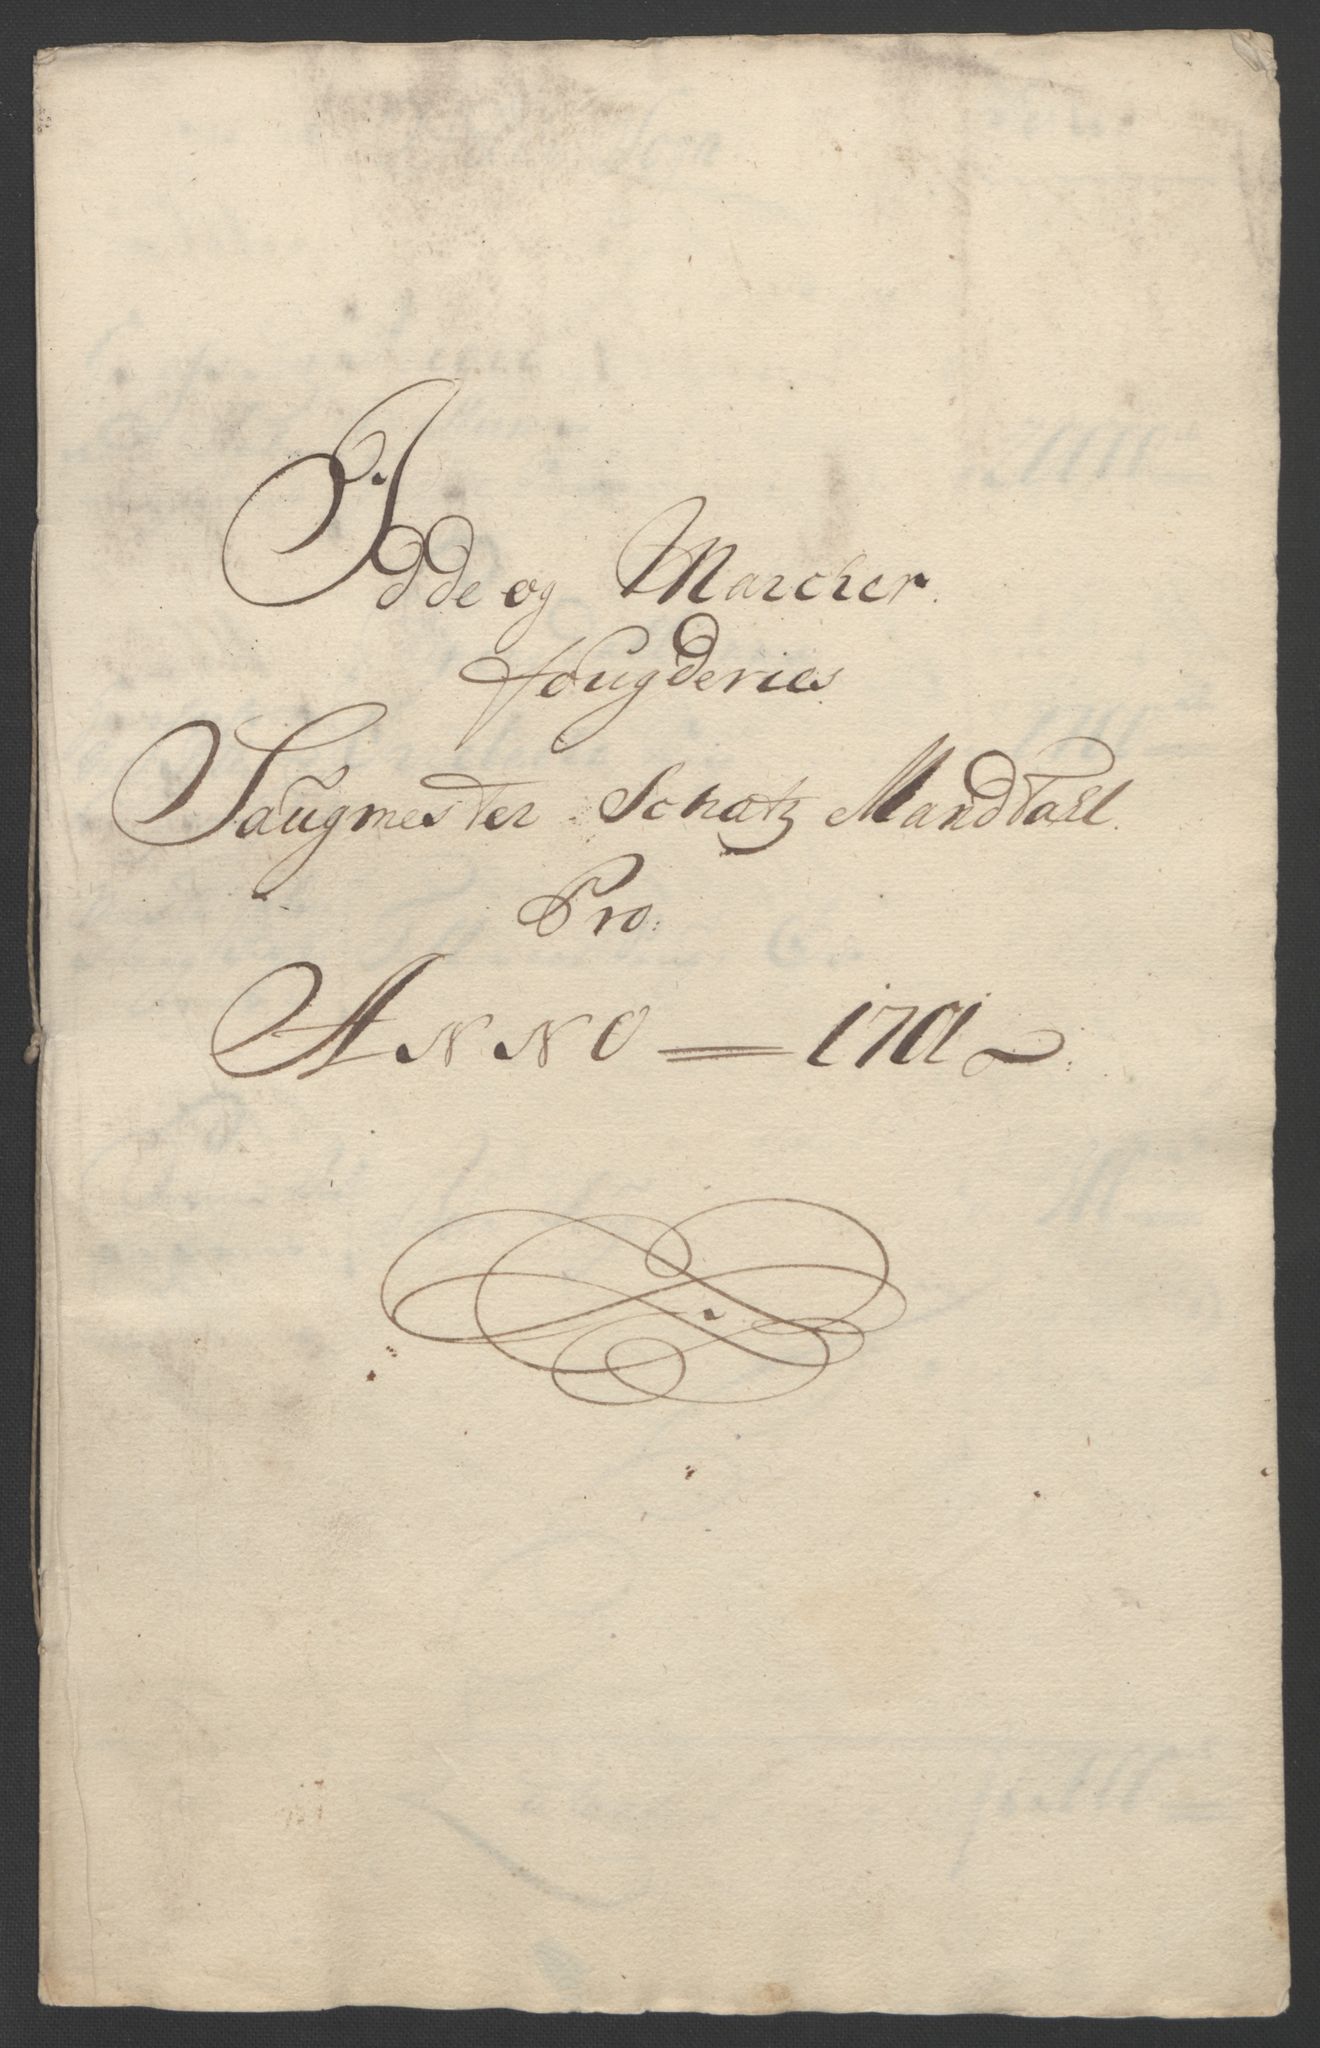 Idde og Marcher.
fougderies
Saugmester Schatz Mandtall.
Pro:
ANNO = 1701